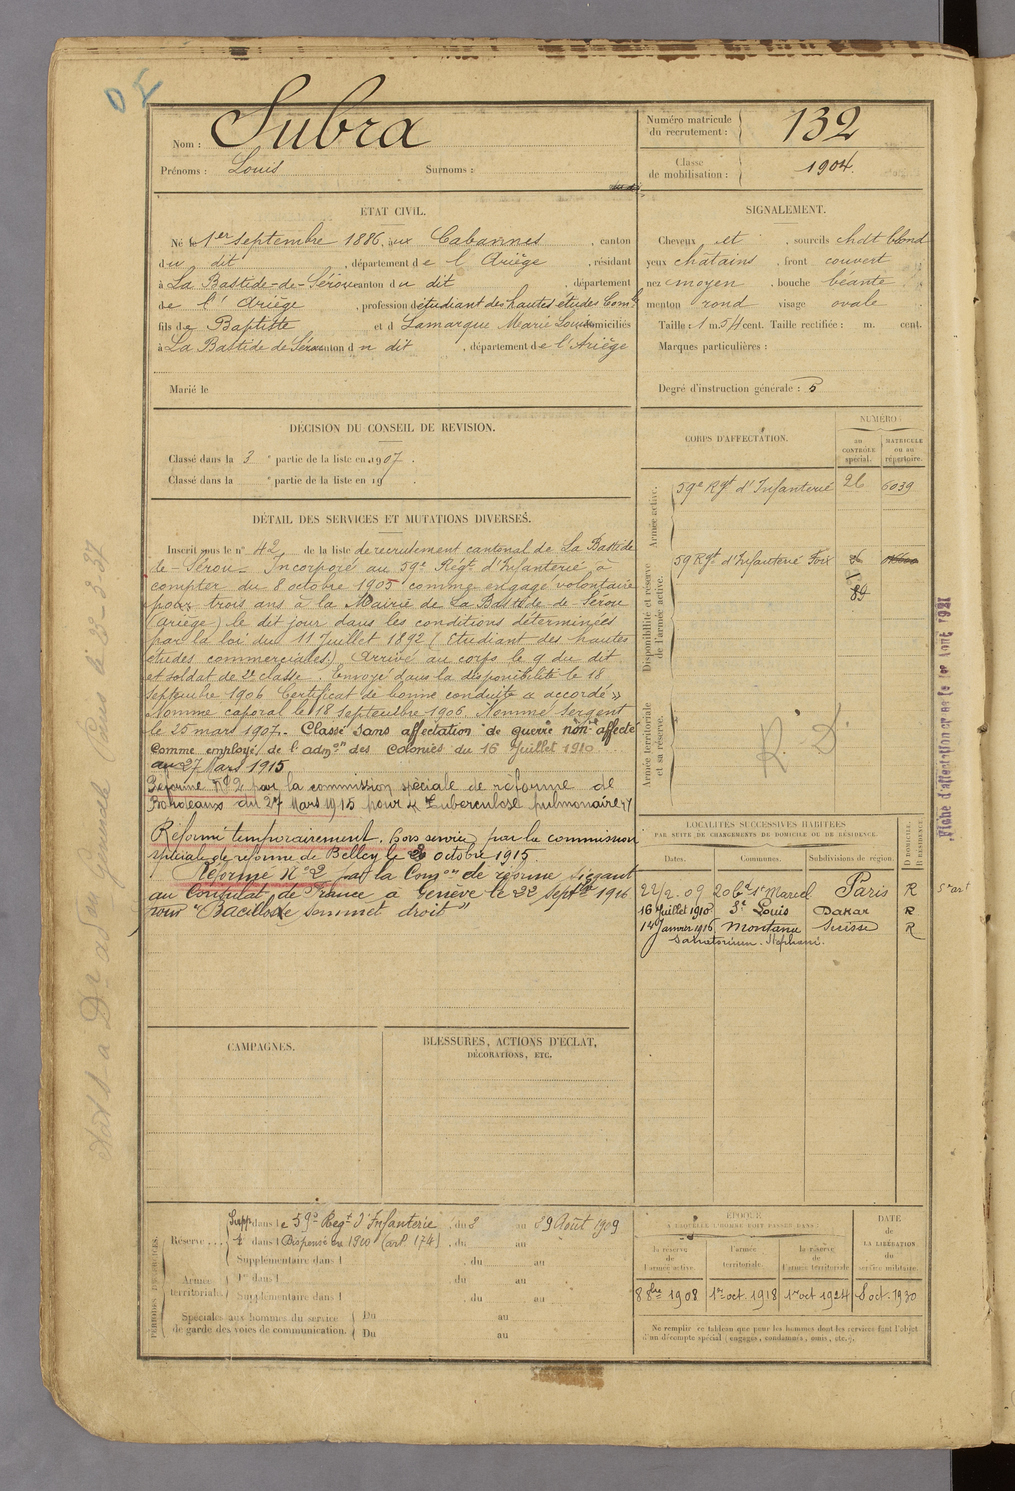 Nom : Subra
Prénoms : Louis Surnoms :
Numéro matricule du recrutement : 132
Classe de mobilisation : 1904.
ETAT CIVIL.
Né le 1er septembre 1886, aux Cabannes, canton
du dit, département de l'Ariège, résidant
à La Bastide-de-Sérou canton du dit, département
de l'Ariège, profession d'étudiant des hautes études Comles
fils de Baptiste et d Lamarque Marie Louise domiciliés
à La Bastide de Sérou canton du dit, département de l'Ariège
Marié le
SIGNALEMENT.
Cheveux et , sourcils chdt blond
yeux châtains , front couvert
nez moyen , bouche béante
menton rond visage ovale
Taille 1 m 54 cent. Taille rectifiée : m. cent.
Marques particulières :
Degré d'instruction générale : 5
DÉCISION DU CONSEIL DE REVISION.
Classé dans la 3e partie de la liste en 1907.
Classé dans la e partie de la liste en 19 .
DÉTAIL DES SERVICES ET MUTATIONS DIVERSES.
Inscrit sous le n° 42 de la liste de recrutement cantonal de La Bastide
de-Sérou - Incorporé au 59e Régt d'Infanterie à
compter du 8 octobre 1905 comme engagé volontaire
pour trois ans à la Mairie de La Bastide de Sérou
(Ariège) le dit jour dans les conditions déterminées
par la loi du 11 Juillet 1892 (Etudiant des hautes
études commerciales). Arrivé au corps le 9 du dit
et soldat de 2e classe. Envoyé dans la disponibilité le 18
Septembre 1906 Certificat de bonne conduite « accordé »
Nommé caporal le 18 Septembre 1906. Nommé Sergent
le 25 mars 1907. - Classé sans affectation de guerre "non affecté"
comme employé de l'admon des Colonies du 16 Juillet 1910
au 27 Mars 1915
Réformé N°2 par la commission spéciale de réforme de
Bordeaux du 27 Mars 1915 pour "Tuberculose pulmonaire"
Réformé temporairement, hors service) par la commission
spéciale de réforme de Belley le 20 octobre 1915.
Réformé N°2 par la Comon de réforme siégeant
au Consulat de France à Genève le 22 septbre 1916
pour "Bacillose sommet droit"
CORPS D'AFFECTATION.
NUMÉRO
au CONTRÔLE spécial.
MATRICULE ou au répertoire.
Armée active.
59e Rgt d'Infanterie 26 6039
Disponibilité et réserve de l'armée active.
59 Rgt d'Infanterie Foix
89
Armée territoriale et sa réserve.
R. D.
LOCALITÉS SUCCESSIVES HABITÉES
PAR SUITE DE CHANGEMENTS DE DOMICILE OU DE RÉSIDENCE.
Dates. Communes. Subdivisions de région. D DOMICILE. R RÉSIDENCE.
22/2.09 20 Bd St Marcel Paris R
16 Juillet 1910 St Louis Dakar R
14 Janvier 1916 Montana Suisse R
Sanatorium. Stephani.
5e art
CAMPAGNES.
BLESSURES, ACTIONS D'ÉCLAT,
DÉCORATIONS, ETC.
PÉRIODES D'EXERCICES.
Réserve ....
Supp. dans le 59e Regt d'Infanterie, du 2 au 29 Août 1909
2e dans l Dispensé en 1910 (art 174), du au
Supplémentaire dans l , du au
Armée territoriale.
1re dans l , du au
Supplémentaire dans l , du au
Spéciales aux hommes du service de garde des voies de communication.
Du au
Du au
ÉPOQUE
À LAQUELLE L'HOMME DOIT PASSER DANS :
la réserve de l'armée active.
l'armée territoriale.
la réserve de l'armée territoriale
DATE de LA LIBÉRATION du service militaire.
8 8bre 1908 1er oct. 1918 1er oct 1924 8 oct. 1930
Ne remplir ce tableau que pour les hommes dont les services font l'objet
d'un décompte spécial (engagés, condamnés, omis, etc.).
Fiche d'affectation après le 1er Août 1921